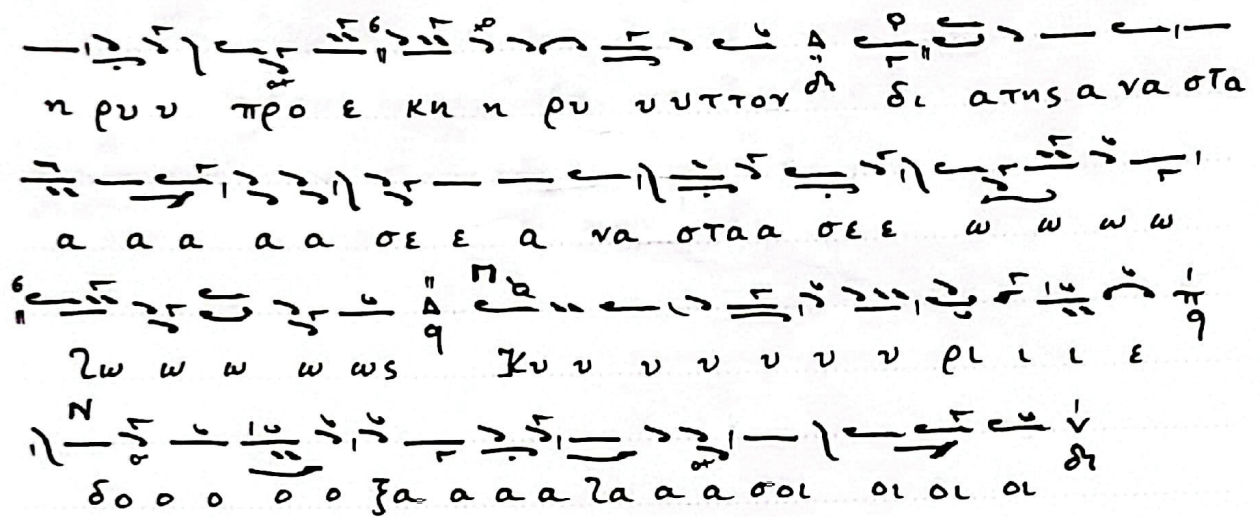 η ρυ υ προ ε κη η ρυ υ υττον δι ατης α να στα
α α α α α σε ε α να σταα σε ε ω ω ω ω
ζω ω ω ω ως Κυ υ υ υ υ υ ρι ι ι ε
δο ο ο ο ο ξα α α α ζα α α σοι οι οι οι